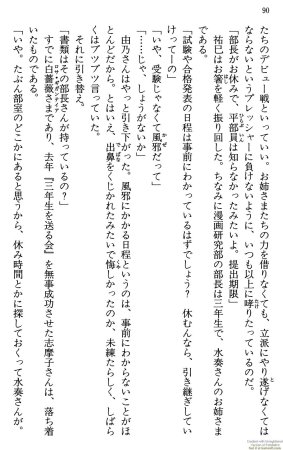 90
たちのデビュー戦といっていい。お姉さまたちの力を借りなくても、立派にやり遂げなくては
ならないというプレッシャーに負けないように、いつも以上に哮りたっているのだ。
「部長がお休みで、平部員は知らなかったみたいよ。提出期限」
祐巳はお箸を軽く振り回した。ちなみに漫画研究部の部長は三年生で、水奏さんのお姉さま
である。
「試験や合格発表の日程は事前にわかっているはずでしょう? 休むんなら、引き継ぎしてい
けってーの」
「いや、受験じゃなくて風邪だって」
「……じゃ、しょうがないか」
由乃さんはやっと引き下がった。風邪にかかる日程というのは、事前にわからないことがほ
とんどだから。とはいえ、出鼻をくじかれたみたいで悔しかったのか、未練たらしく、しばら
くはブツブツ言っていた。
それに引き替え。
「書類はその部長さんが持っているの?」
すでに白薔薇さまであり、去年『三年生を送る会』を無事成功させた志摩子さんは、落ち着
いたものである。
「いや。たぶん部室のどこかにあると思うから、休み時間とかに探しておくって水奏さんが。